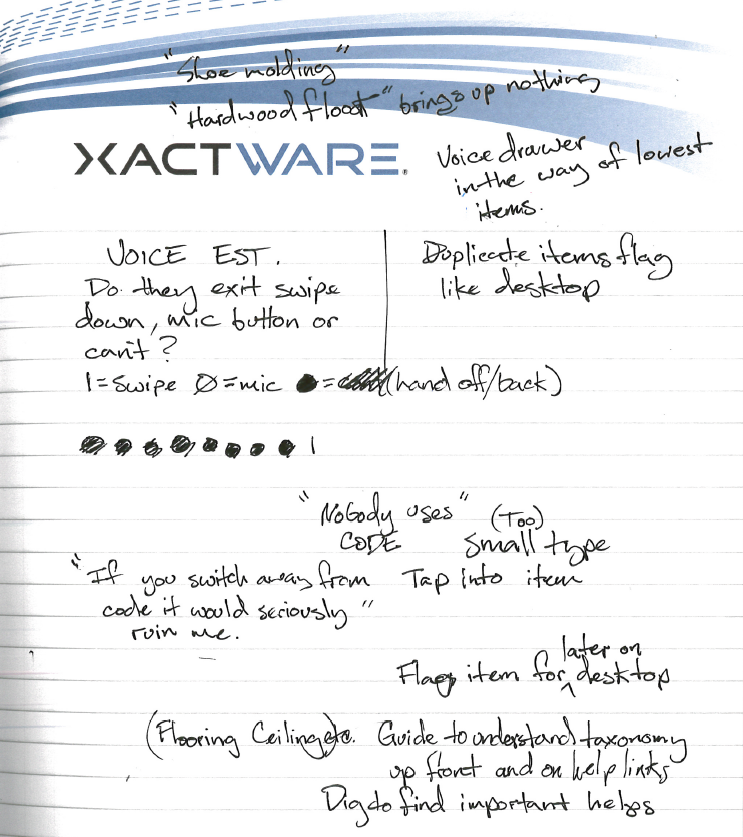 "Shoe molding"
"Hardwood floor" brings up nothing
XACTWARE®
Voice drawer
in the way of lowest
items.
VOICE EST.
Do they exit swipe
down, mic button or
can't?
1=Swipe Ø=mic ●= (hand off/back)
Duplicate items flag
like desktop
● ● ● ● ● ● ● ● 1
"Nobody uses"
CODE
(Too)
small type
"If you switch away from
code it would seriously"
ruin me.
Tap into item
Flag item for later on desktop
(Flooring Ceiling etc. Guide to understand taxonomy
up front and on help links
Dig to find important helps